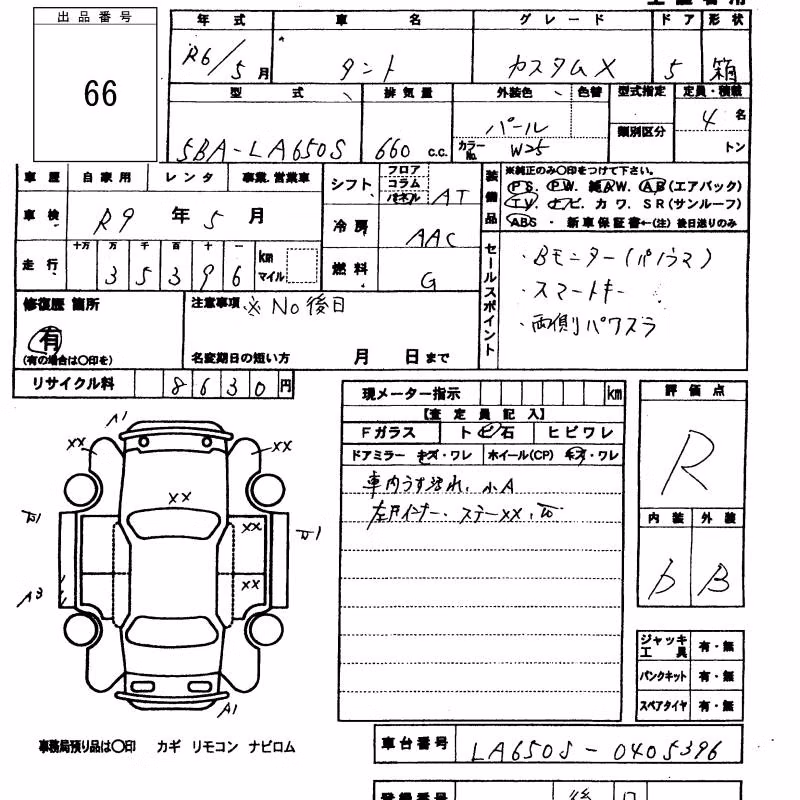 出品番号
66
年式 車名 グレード ドア 形状
R6/5月 タント カスタムX 5 箱
型式 排気量 外装色 色替 型式指定 定員・積載
5BA-LA650S 660 c.c. パール 類別区分 4名
カラーNo. W25 トン
車歴 自家用 レンタ 事業.営業車
車検 R9年5月
走行 十万 万 千 百 十 一
3 5 3 9 6 km マイル
シフト フロア コラム パネル AT
冷房 AAC
燃料 G
装備品 ※純正のみ〇印をつけて下さい。
PS. PW. 純AW. AB(エアバック)
TV. ナビ. カワ. SR(サンルーフ)
ABS・新車保証書←(注)後日送りのみ
セールスポイント
・Bモニター(パノラマ)
・スマートキー
・両側パワスラ
修復歴 箇所
有
(有の場合は〇印を)
注意事項 ※No後日
名変期日の短い方 月 日まで
リサイクル料 8630円
現メーター指示 km
【査定員記入】
Fガラス トビ石 ヒビワレ
ドアミラー キズ・ワレ ホイール(CP) キズ・ワレ
車内うす汚れ、小A
評価点
R
内装 外装
b B
A1
XX XX
XX
XX
1 1
XX
A3
A1
ジャッキ工具 有・無
パンクキット 有・無
スペアタイヤ 有・無
事務局預り品は〇印 カギ リモコン ナビロム
車台番号 LA650S-0405396